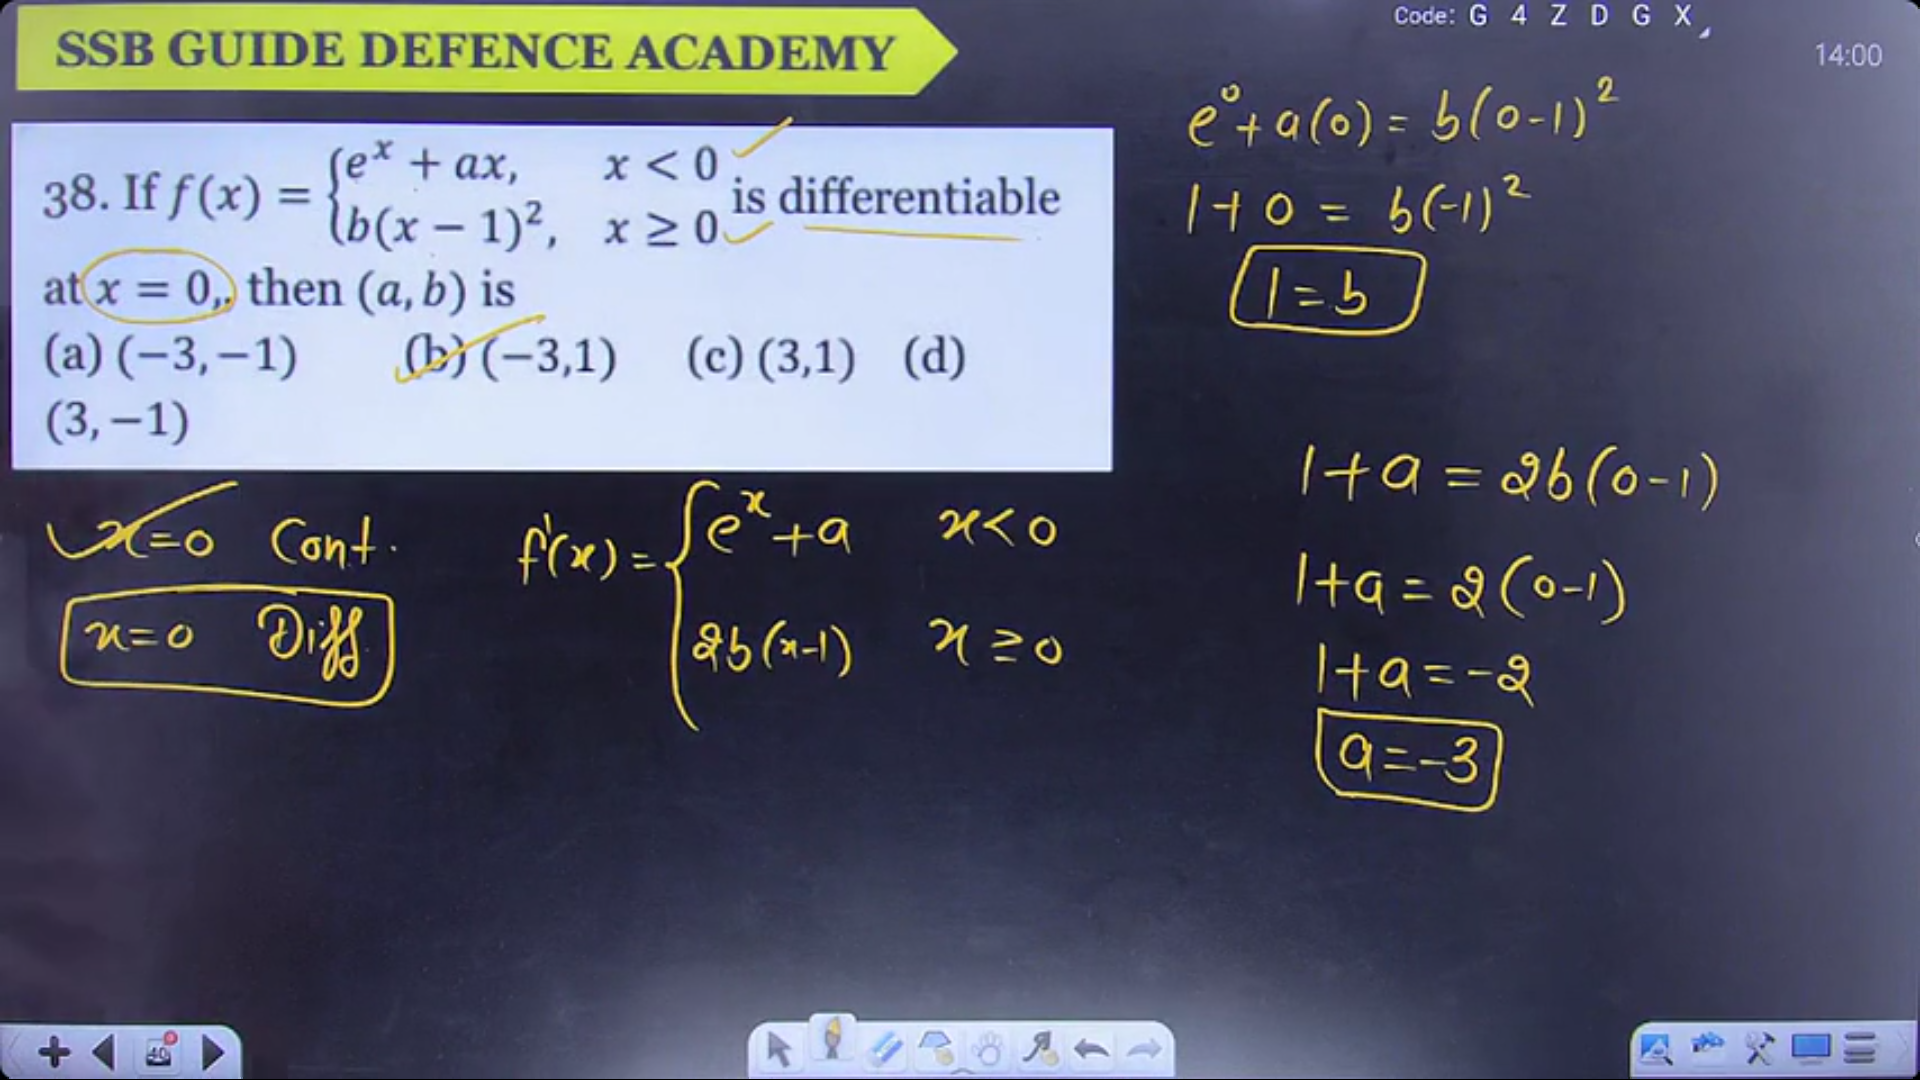 SSB GUIDE DEFENCE ACADEMY
Code: G 4 Z D G X
14:00
38. If f(x) = {e^x + ax, x < 0
b(x − 1)², x ≥ 0 is differentiable
at x = 0,. then (a, b) is
(a) (−3, −1) (b) (−3,1) (c) (3,1) (d)
(3, −1)
x=0 Cont.
x=0 Diff
f'(x) = {e^x + a x < 0
2b(x-1) x ≥ 0
e⁰ + a(0) = b(0-1)²
1 + 0 = b(-1)²
1 = b
1 + a = 2b(0-1)
1 + a = 2(0-1)
1 + a = -2
a = -3
40